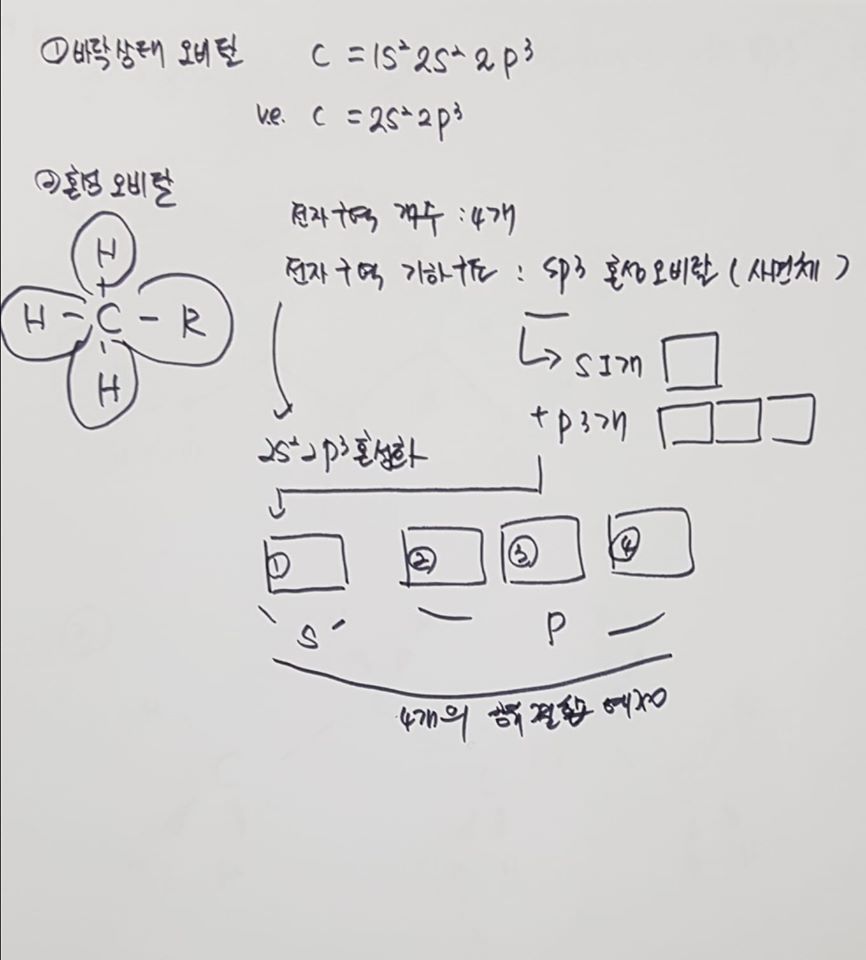 ① 바닥상태 오비탈 C = 1S² 2S² 2P³
v.e. C = 2S² 2P³
② 혼성 오비탈
전자구역 개수 : 4개
전자구역 기하구조 : SP3 혼성오비탈 (사면체)
H
H - C - R
H
↳ S 1개
+ P 3개
2S² 2P³ 혼성화
① ② ③ ④
S P
4개의 결합